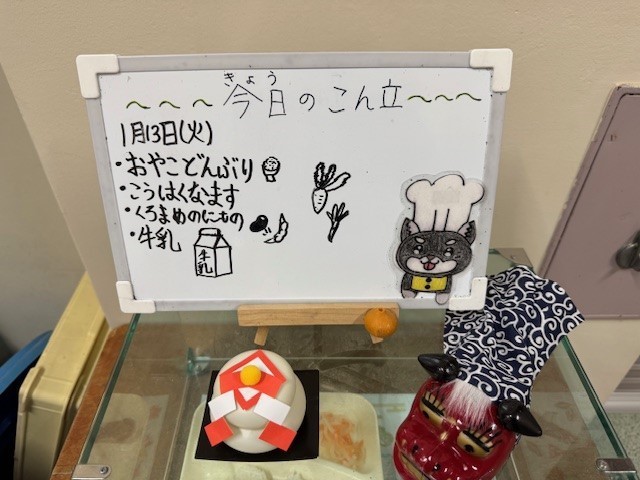 きょう
～～～今日のこん立～～～
1月13日(火)
・おやこどんぶり
・こうはくなます
・くろまめのにもの
・牛乳
牛乳